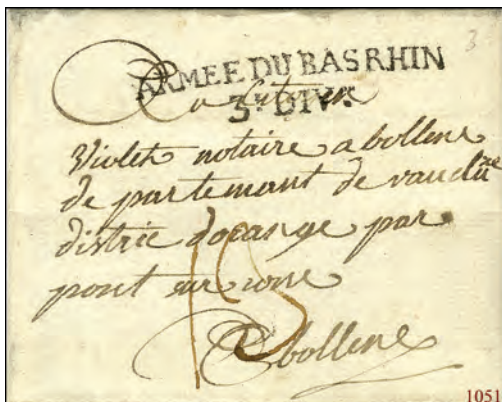 3
ARMEE DU BAS RHIN
3e DIVon
Au Citoien
Violet notaire a bollene
de partemant de vauclu
district dorange par
pont sur rone
Abollene
15
1051